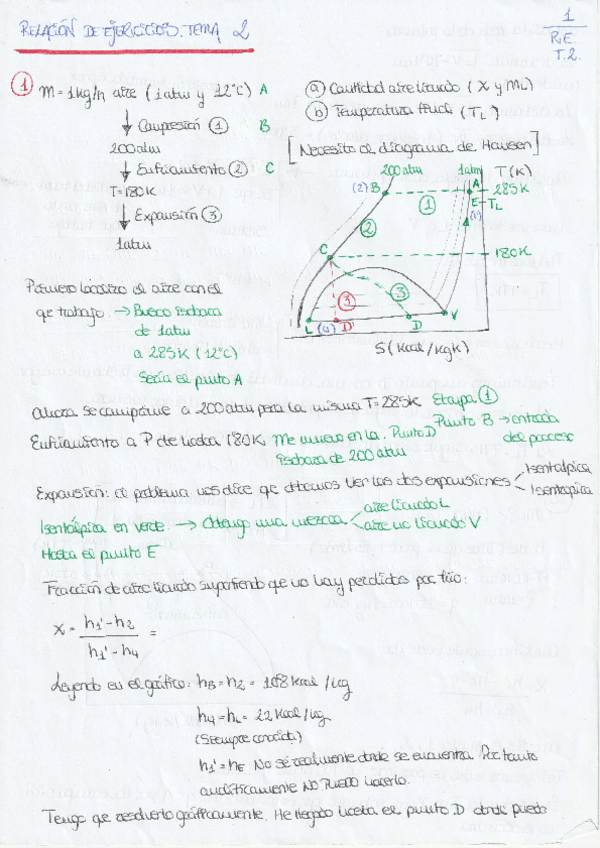 RELACIÓN DE EJERCICIOS. TEMA 2
1
R.E.
T.2.
① m = 1 kg/h aire (1 atm y 12°C) A
Compresión ① B
200 atm
Enfriamiento ② C
T = 180K
Expansión ③
1 atm
ⓐ Cantidad aire licuado (X y mL)
ⓑ Temperatura final (TL)
[Necesito el diagrama de Hausen]
200 atm 1 atm T(K)
(2) B A 285K
① E TL
② (1')
C 180K
③ ③
L (4) D' D V
S (Kcal/KgK)
Primero localizo el aire con el
que trabajo. → Busco isobara
de 1 atm
a 285K (12°C)
Sería el punto A
Ahora se comprime a 200 atm para la misma T = 285K Etapa ①
Punto B → entrada
del proceso
Enfriamiento a P cte hasta 180K. Me muevo en la . Punto D
isobara de 200 atm
Expansión: el problema nos dice que tenemos las dos expansiones
Isentálpica
Isentrópica
Isentálpica en verde. → Obtengo una mezcla
aire licuado L
aire no licuado V
Hasta el punto E
Fracción de aire licuado suponiendo que no hay perdidas por frío:
X = h1' - h2 / h1' - h4 =
Leyendo en el gráfico: hB = h2 = 108 Kcal/kg
h4 = hL = 22 Kcal/kg
(siempre conocida)
h1' = hE No sé realmente donde se encuentra. Por tanto
analíticamente NO PUEDO hacerlo.
Tengo que resolverlo gráficamente. He llegado hasta el punto D donde puedo